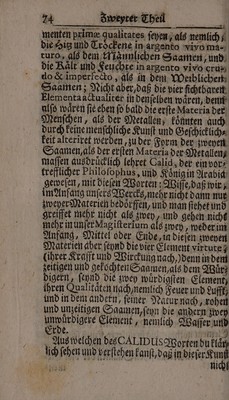 74 Zweyter Theil
menten primæ qualitates seyen, als nemlich,
die Hitz und Tröckene in argento vivo ma-
turo, als dem Männlichen Saamen, und
die Kält und Feuchte in argento vivo cru-
do & imperfecto, als in dem Weiblichen
Saamen; Nicht aber, daß die vier sichtbaren
Elementa actualiter in demselben wären, denn
also wären sie eben so bald die erste Materia der
Menschen, als der Metallen, könnten auch
durch keine menschliche Kunst und Geschicklich-
keit alteriret werden, zu der Form der zweyen
Saamen, als der ersten Materia der Metallen,
massen ausdrücklich lehret Calid, der ein vor-
trefflicher Philosophus, und König in Arabia
gewesen, mit diesen Worten: Wisse, daß wir,
im Anfang unsers Wercks, mehr nicht dann nur
zweyer Materien bedörffen, und man siehet und
greiffet mehr nicht als zwey, und gehen nicht
mehr in unser Magisterium als zwey, weder im
Anfang, Mittel oder Ende, in diesen zweyen
Materien aber seynd die vier Element virtute,
(ihrer Krafft und Würckung nach,) denn in dem
zeitigen und gekochten Saamen, als dem Wür-
digern, seynd die zwey würdigsten Element,
ihren Qualitäten nach, nemlich Feuer und Lufft,
und in dem andern, seiner Natur nach, rohen
und unzeitigen Saamen, seyn die andern zwey
unwürdigere Element, nemlich Wasser und
Erde.
Aus welchen des CALIDUS Worten du klär-
lich sehen und verstehen kanst, daß in dieser Kunst
nicht